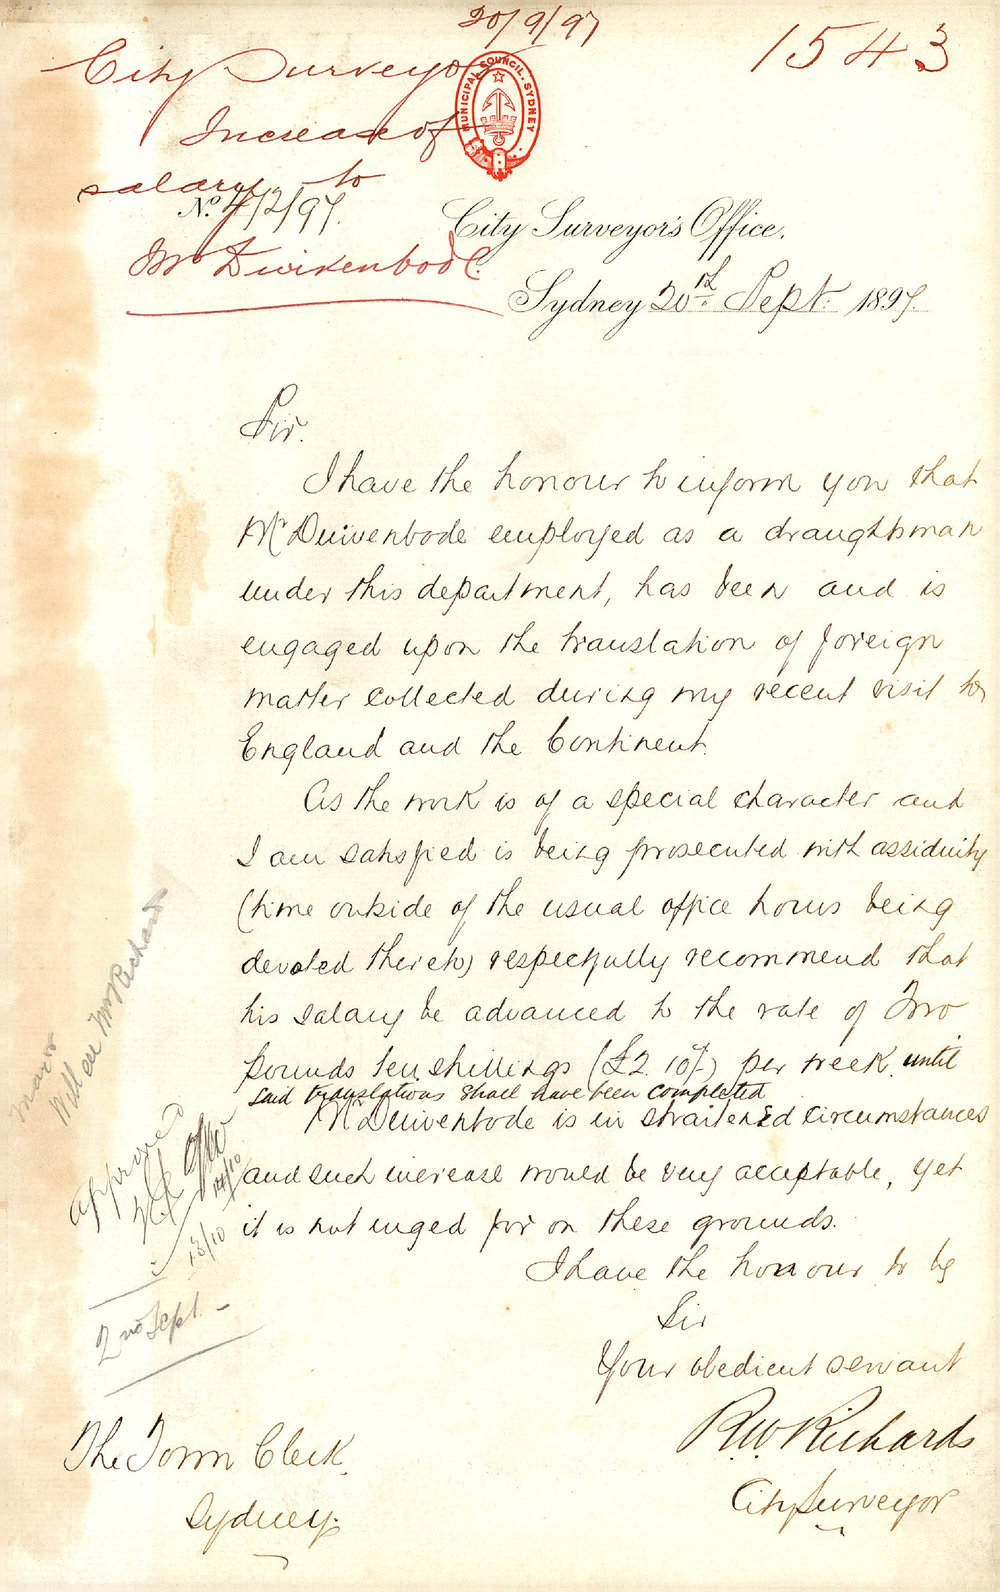 20/9/97
1543
City Surveyor
MUNICIPAL COUNCIL. SYDNEY
Increase of
salary to
No. 712/97.
City Surveyor's Office,
Mr Duivenbode.
Sydney 20th Sept. 1897.
Sir.
I have the honour to inform you that
Mr Duivenbode employed as a draughtsman
under this department, has been and is
engaged upon the translation of foreign
matter collected during my recent visit to
England and the Continent.
As the work is of a special character and
I am satisfied is being prosecuted with assiduity
(time outside of the usual office hours being
devoted thereto) respectfully recommend that
his salary be advanced to the rate of Two
pounds ten shillings (£2. 10/-) per week until
said translations shall have been completed
Mr Duivenbode is in straitened circumstances
and such increase would be very acceptable, yet
it is not urged for on these grounds.
I have the honour to be
Sir
Your obedient servant
R.W. Richards
City Surveyor
The Town Clerk,
Sydney.
Mayor
Will see Mr Richards
approved
14/10
13/10
2nd Sept.